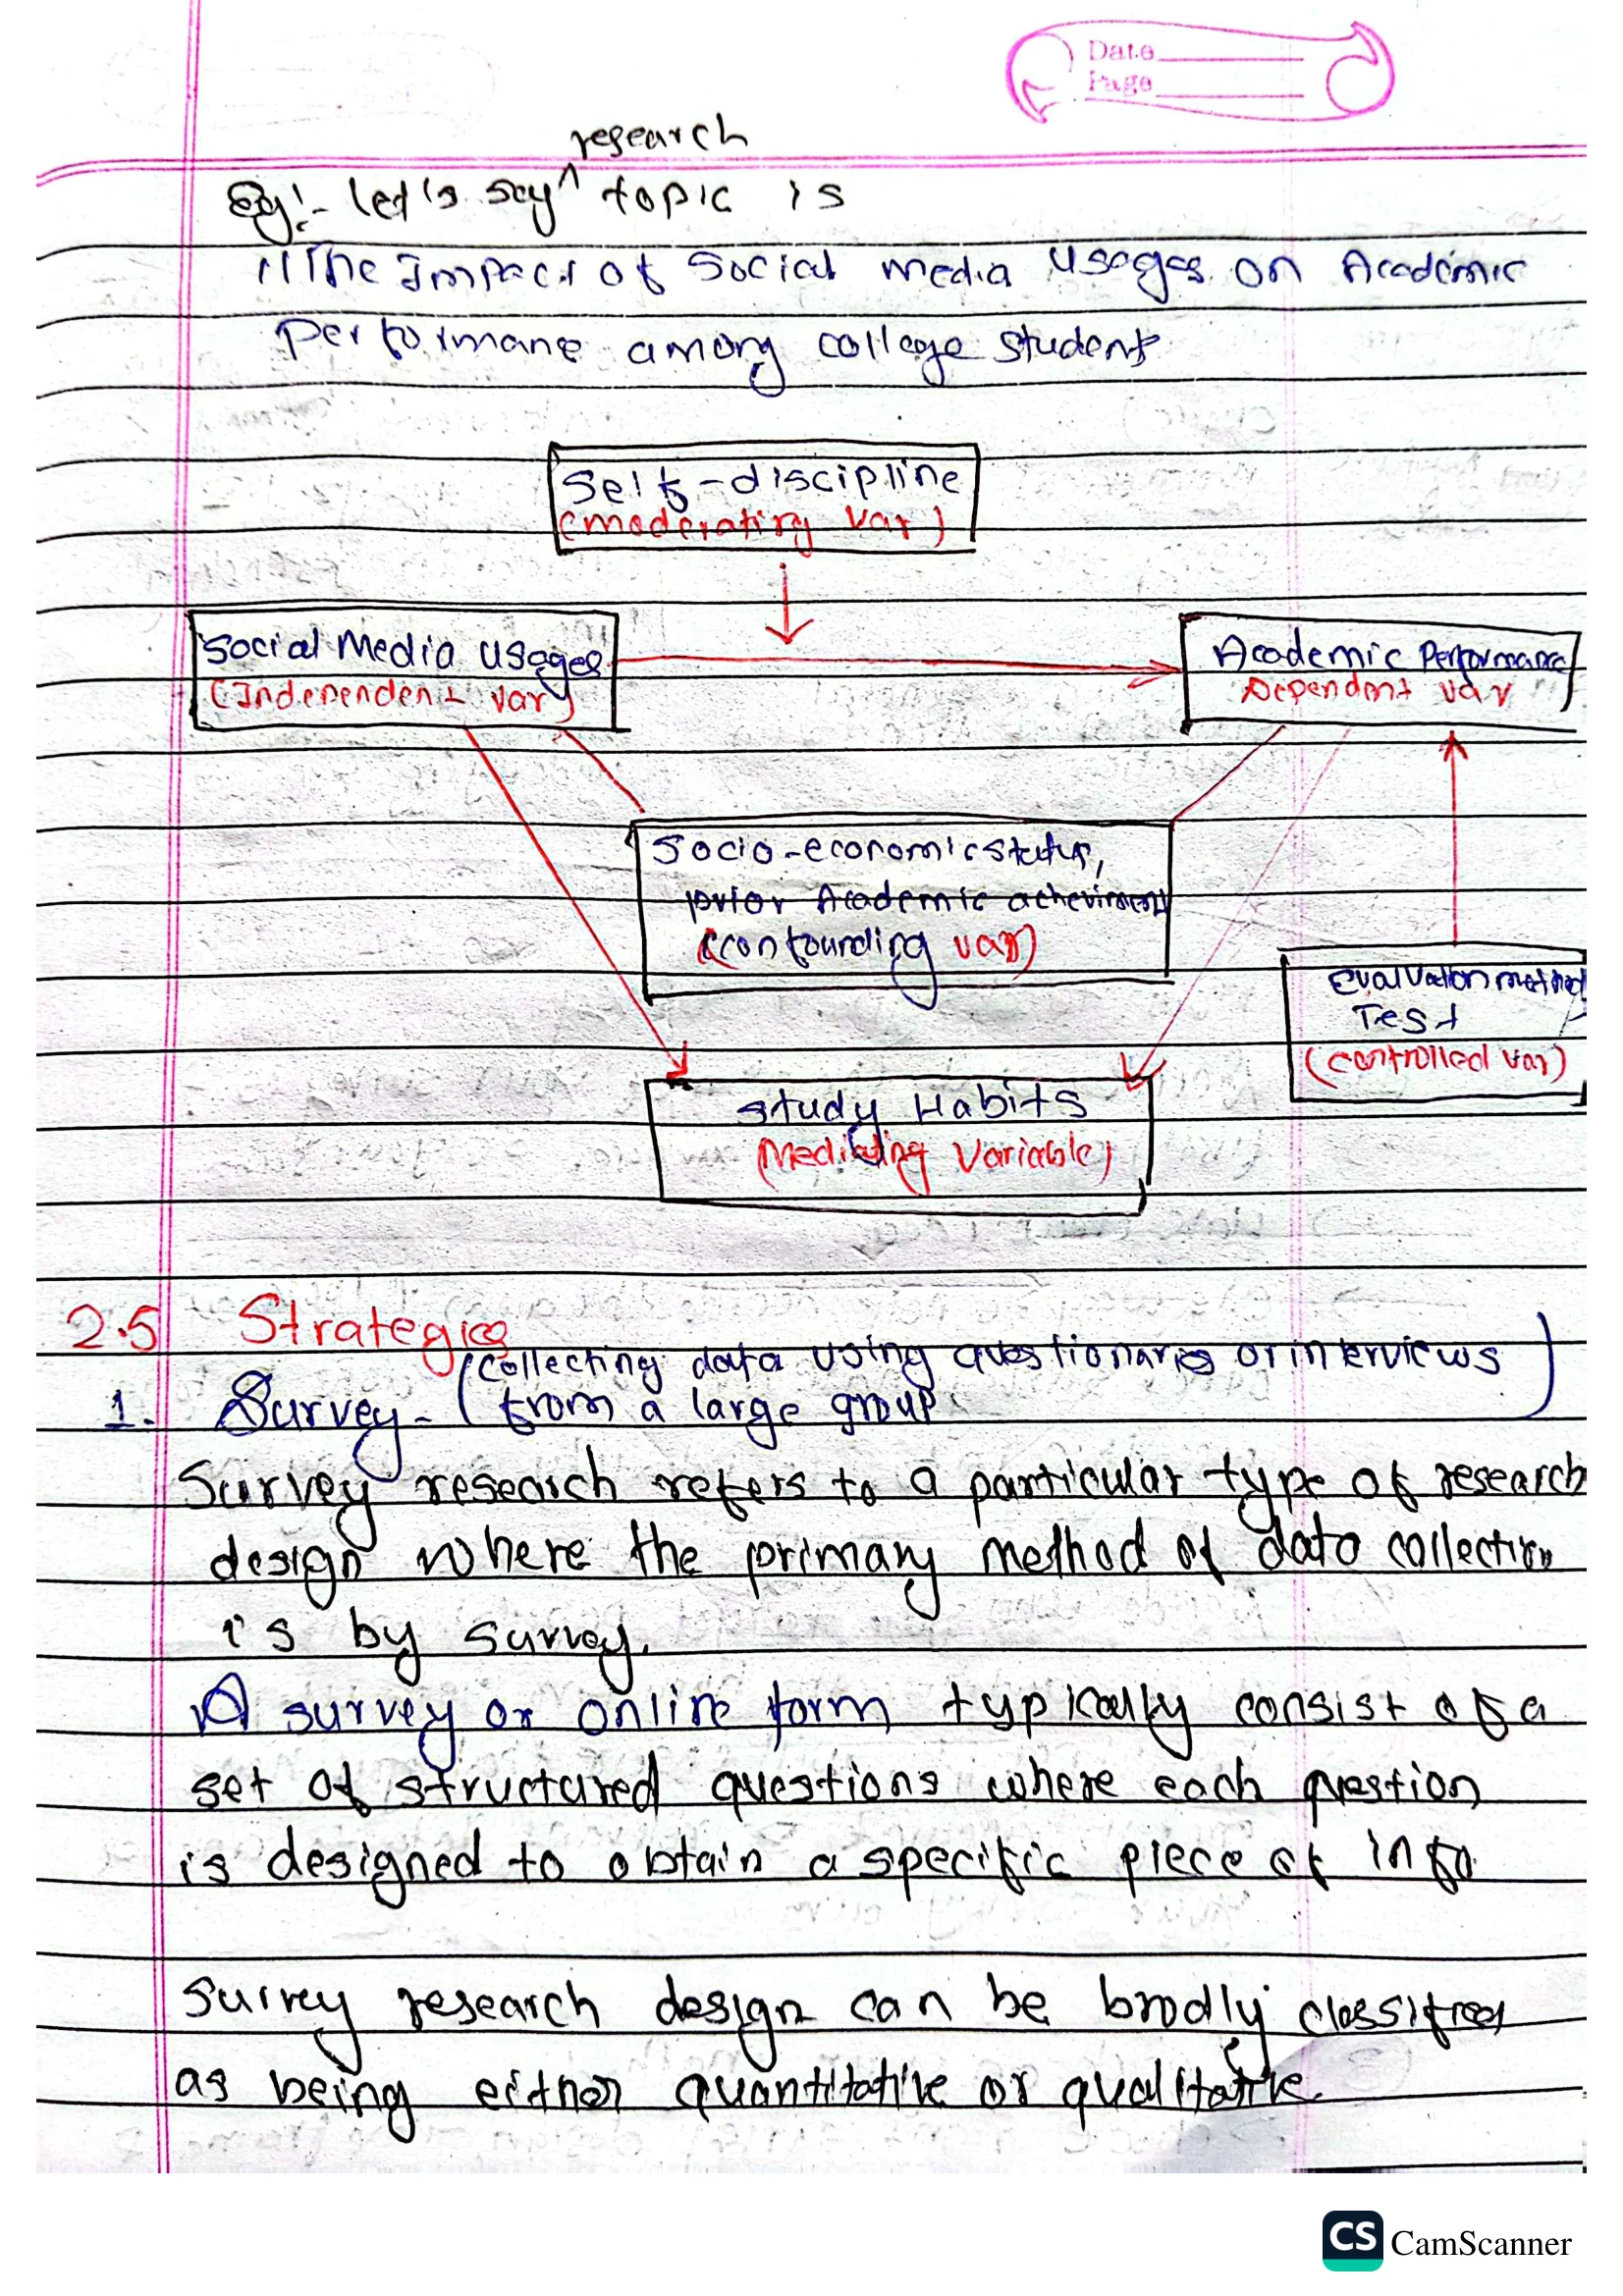 Date
Page
research
Eg:- Let's say ^ topic is
"The Impact of Social media Usages on Academic
Performane among college student
Self-discipline
(moderating var)
Social Media Usages
(Independent var)
Academic Performance
Dependent var
Socio-economic status,
prior Academic acheviment
(confounding var)
Evaluation method
Test
(controlled var)
Study Habits
(Mediating Variable)
2.5 Strategies
1. Survey - (collecting data using questionaries or interviews
from a large group)
Survey research refers to a particular type of research
design where the primary method of data collection
is by survey.
A survey or online form typically consist of a
set of structured questions where each question
is designed to obtain a specific piece of info
Survey research design can be brodly classified
as being either quantitative or qualitative.
CS CamScanner